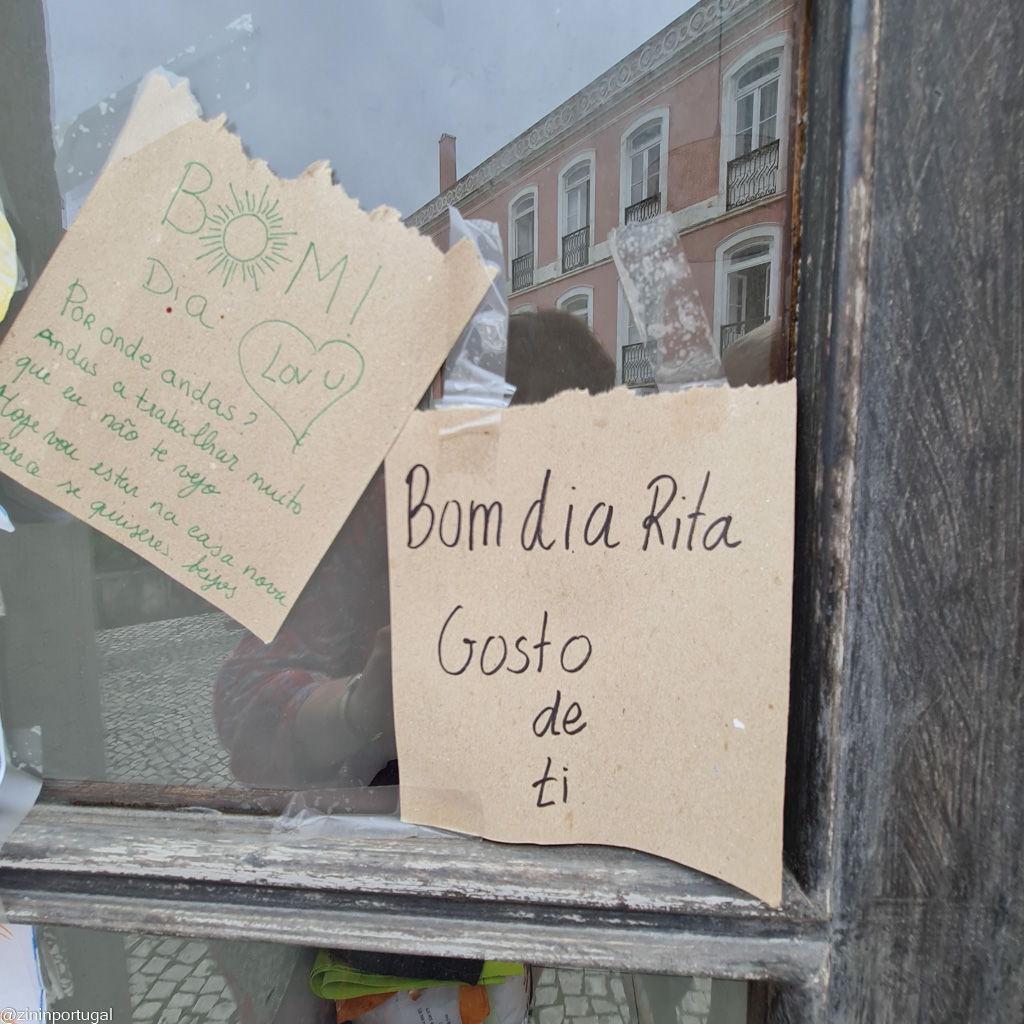 BOM!
Dia
Lov u
Por onde andas?
Andas a trabalhar muito
que eu não te vejo
Hoje vou estar na casa nova
se quiseres. beijos
Bom dia Rita
Gosto
de
ti
@zininportugal